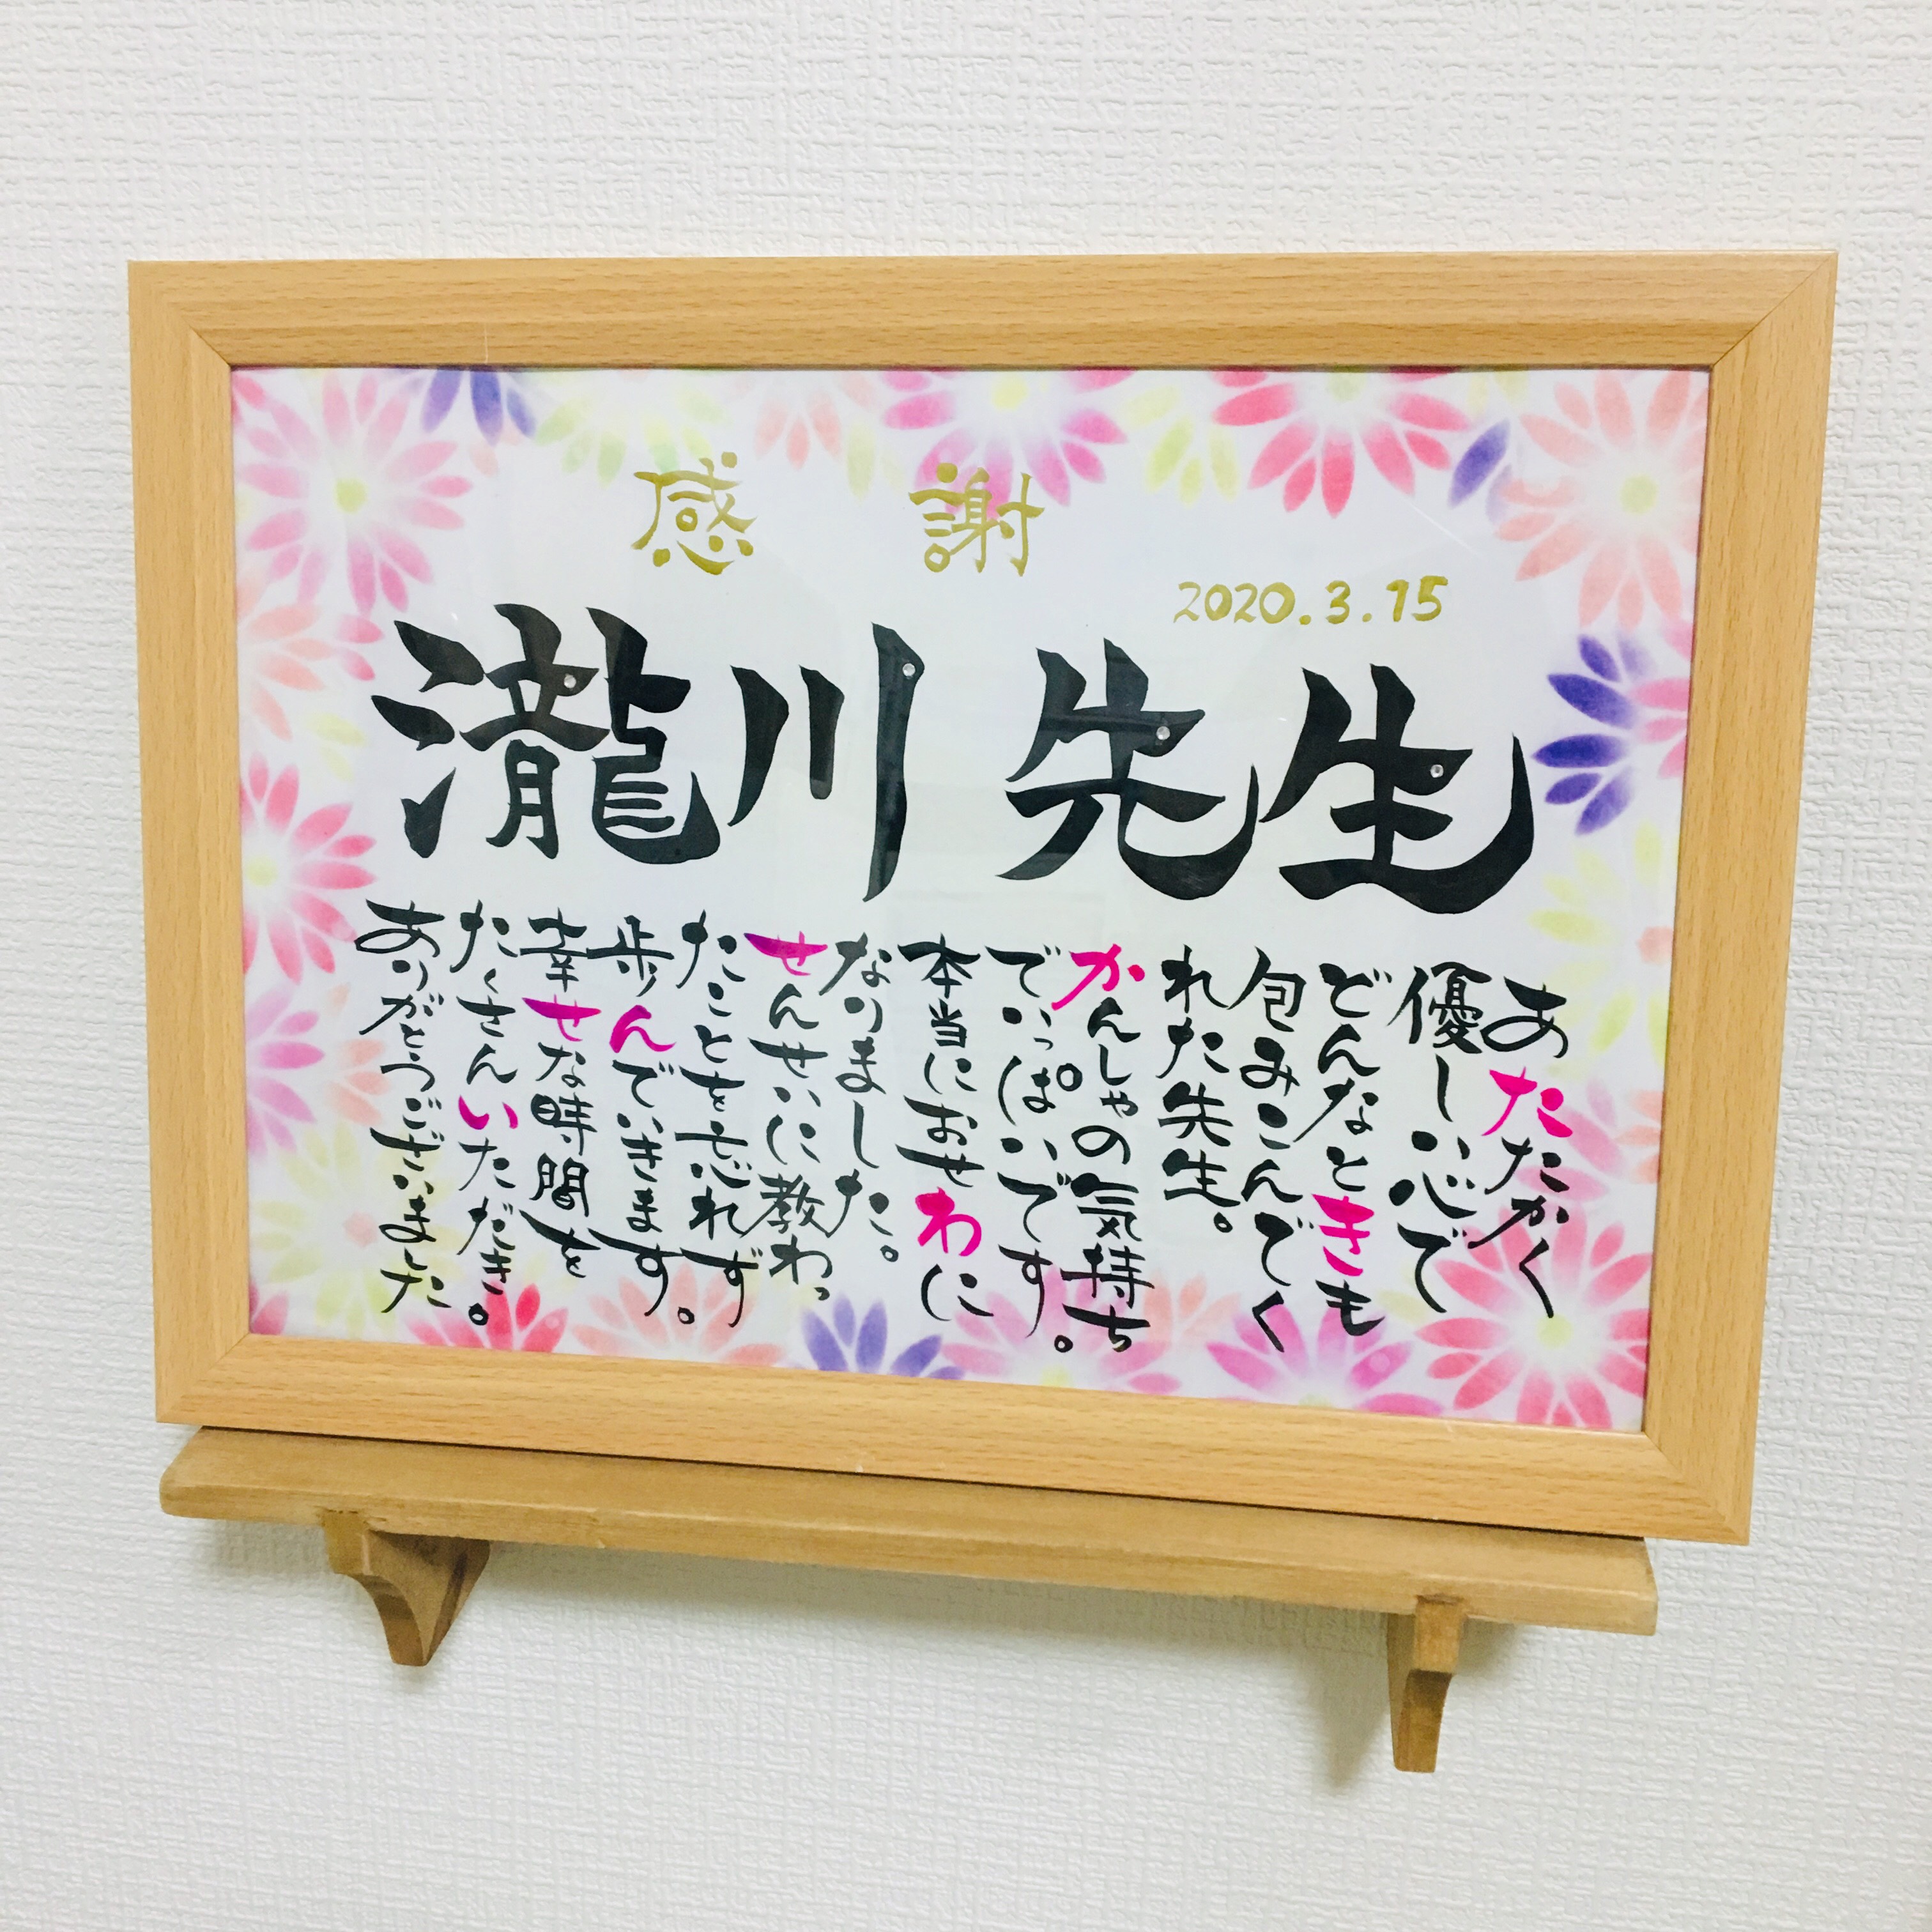 感謝
2020.3.15
瀧川先生
あたたかく
優しい心で
どんなときも
包みこんでく
れた先生。
かんしゃの気持ち
でいっぱいです。
本当におせわに
なりました。
せんせいに教わっ
たことを忘れず
歩んでいきます。
幸せな時間を
たくさんいただき。
ありがとうございました